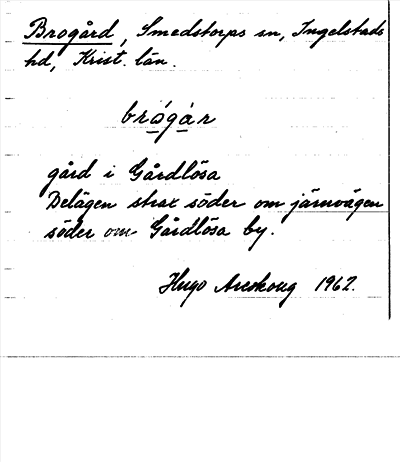 Brogård, Smedstorps sn, Ingelstads
hd, Krist. län.
brógàr
gård i Gårdlösa
Belägen strax söder om järnvägen
söder om Gårdlösa by.
Hugo Areskoug 1962.